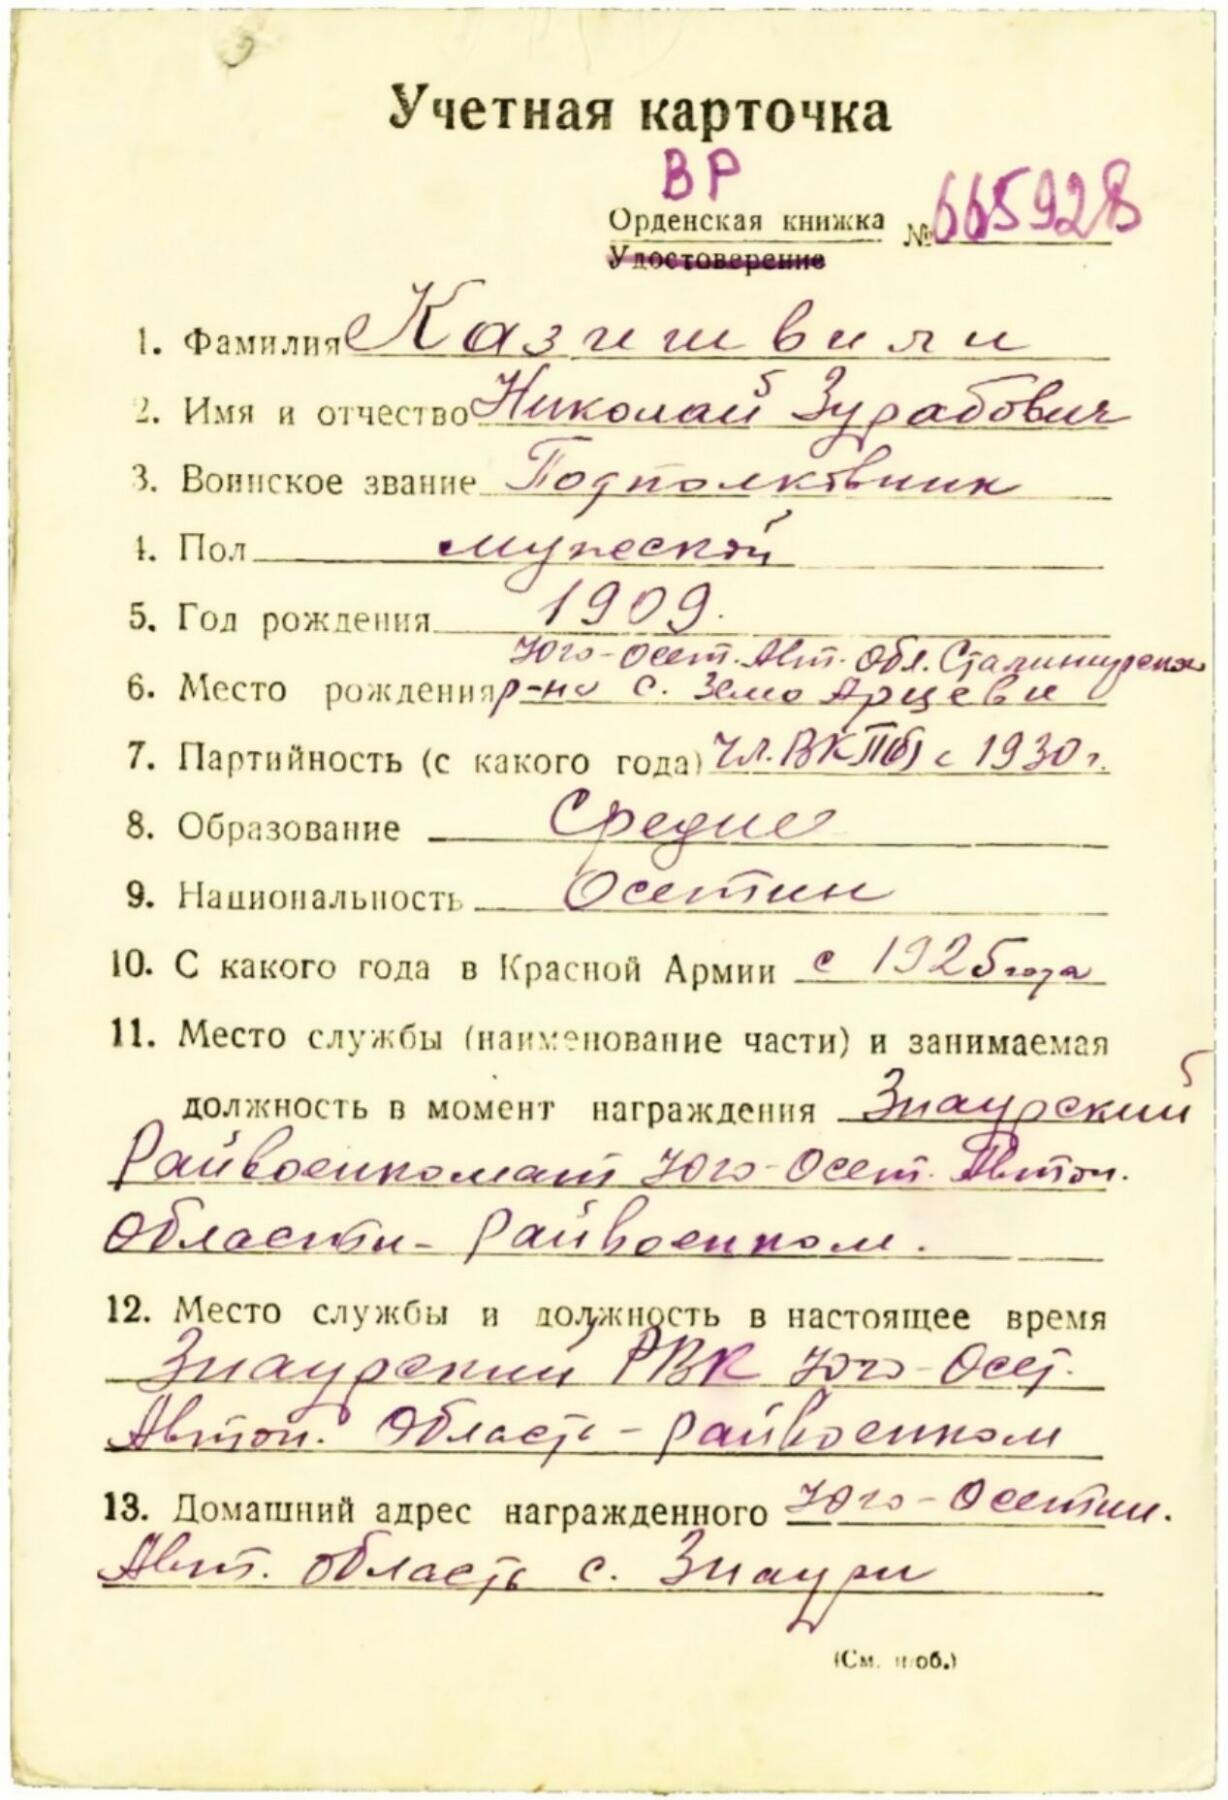 Учетная карточка
ВР
Орденская книжка № 665928
Удостоверение
1. Фамилия Казишвили
2. Имя и отчество Николай Зурабович
3. Воинское звание Подполковник
4. Пол мужской
5. Год рождения 1909.
Юго-Осет. Авт. Обл. Сталинирск
6. Место рождения р-на с. Земо Арцеви
7. Партийность (с какого года) Чл. ВКП(б) с 1930 г.
8. Образование Средне
9. Национальность Осетин
10. С какого года в Красной Армии с 1925 года
11. Место службы (наименование части) и занимаемая
должность в момент награждения Знаурский
Райвоенкомат Юго-Осет. Автон.
Области - Райвоенком.
12. Место службы и должность в настоящее время
Знаурский РВК Юго-Осет.
Автон. Область - райвоенком
13. Домашний адрес награжденного Юго-Осетин.
Авт. область с. Знаури
(См. н/об.)